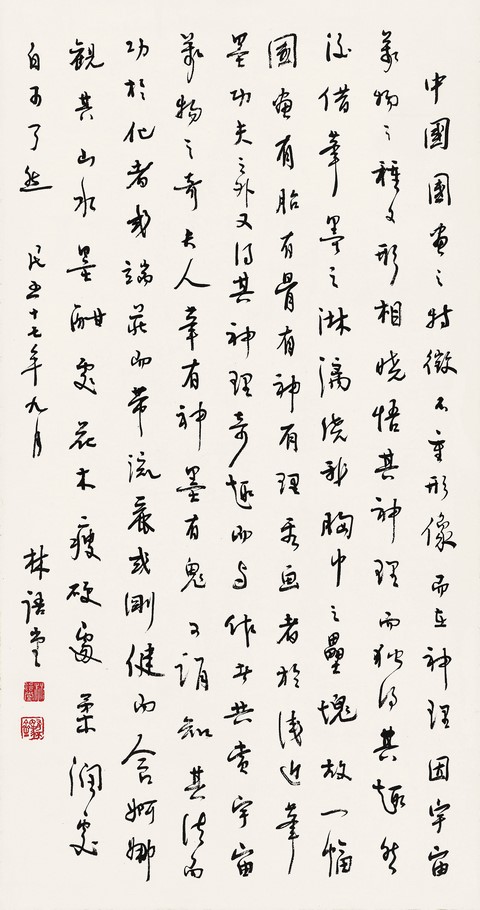 中國國畫之特徵不重形像而在神理因宇宙
萬物之種々形相曉悟其神理而獨得其趣然
後借筆墨之淋漓澆我胸中之壘塊故一幅
國畫有胎有骨有神有理看画者於淺近筆
墨功夫之外又得其神理奇趣而與作者共賞宇宙
萬物之奇夫人筆有神墨有鬼可謂知其法而
功於化者或端莊而帶流麗或剛健而含婀娜
觀其山水墨酣處花木瘦硬處柔潤處
自可了然 民五十七年九月 林語堂